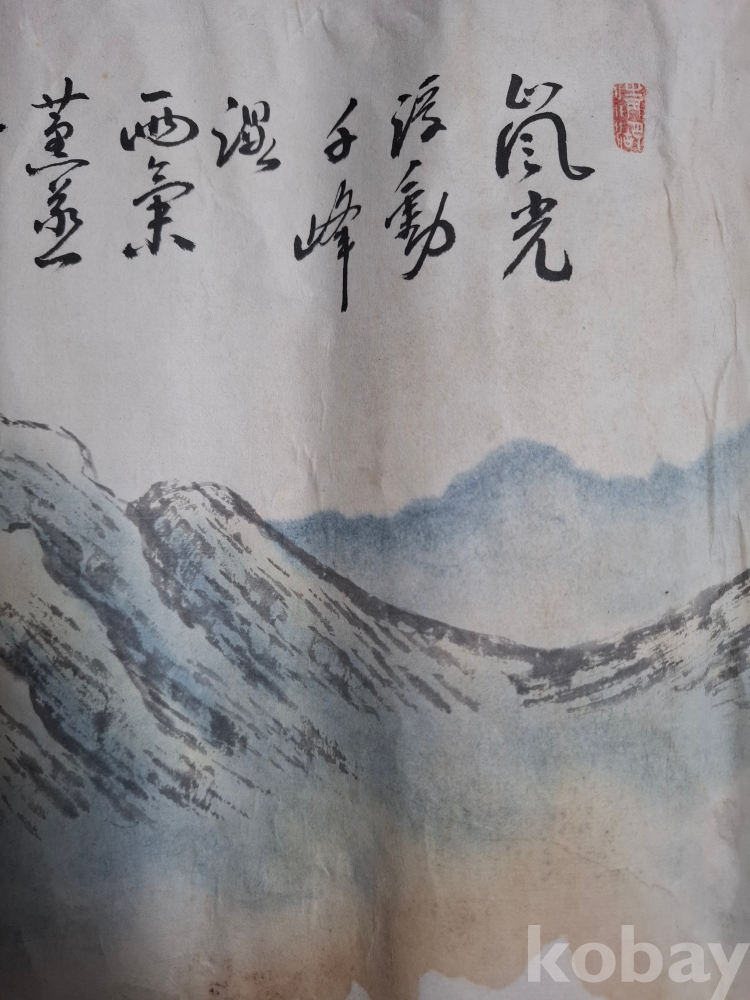 嵐光
浮動
千峰
濕
雨氣
薰蒸
kobay